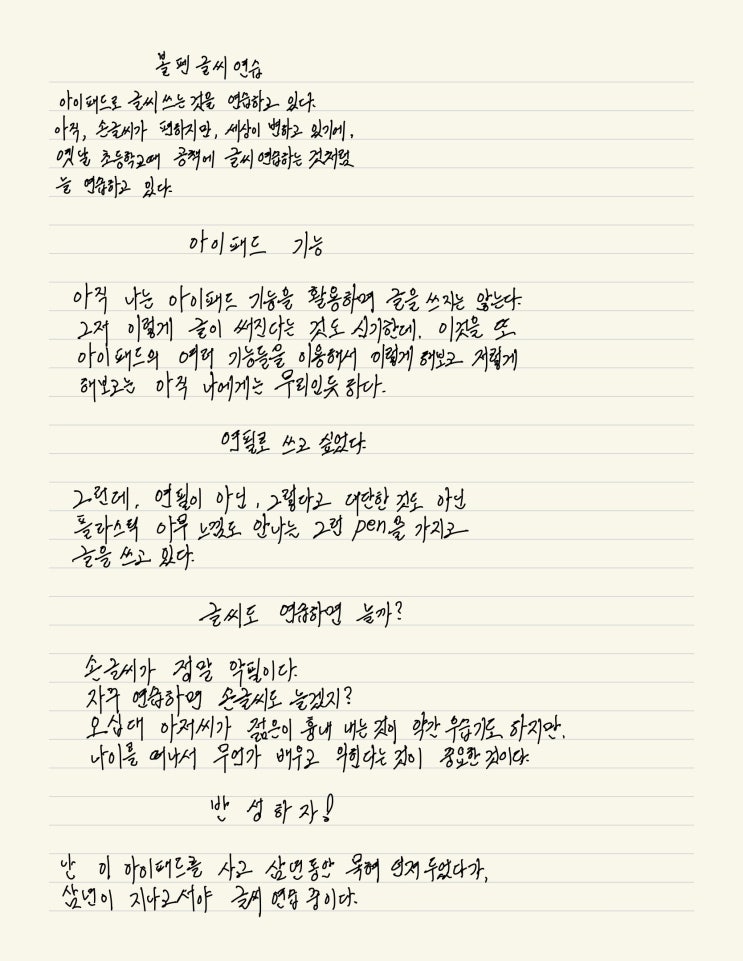 볼펜 글씨 연습
아이패드로 글씨 쓰는 것을 연습하고 있다.
아직, 손글씨가 편하지만, 세상이 변하고 있기에,
옛날 초등학교때 공책에 글씨 연습하는 것처럼
늘 연습하고 있다.
아이패드 기능
아직 나는 아이패드 기능을 활용하며 글을 쓰지는 않는다.
그저 이렇게 글이 써진다는 것도 신기한데, 이것을 또
아이패드의 여러 기능들을 이용해서 이렇게 해보고 저렇게
해보고는 아직 나에게는 무리인듯 하다.
연필로 쓰고 싶었다.
그런데, 연필이 아닌, 그렇다고 대단한 것도 아닌
플라스틱 아무 느낌도 안나는 그런 pen을 가지고
글을 쓰고 있다.
글씨도 연습하면 늘까?
손글씨가 정말 악필이다.
자꾸 연습하면 손글씨도 늘겠지?
오십대 아저씨가 젊은이 흉내 내는 것이 약간 우습기도 하지만,
나이를 떠나서 무언가 배우고 익힌다는 것이 중요한 것이다.
반성하자!
난 이 아이패드를 사고 삼년동안 묵혀 언저 두었다가,
삼년이 지나고서야 글씨 연습 중이다.